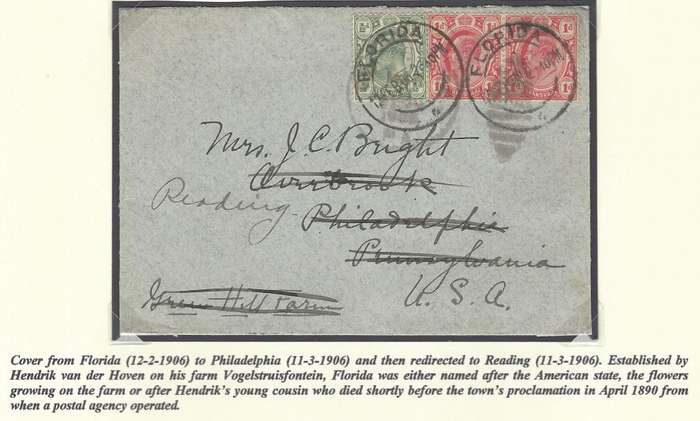 FLORIDA
FLORIDA
½d
1d
1d
Mrs. J. C. Bright
Overbrook
Reading
Philadelphia
Pennsylvania
Green Hill Farm
U. S. A.
Cover from Florida (12-2-1906) to Philadelphia (11-3-1906) and then redirected to Reading (11-3-1906). Established by
Hendrik van der Hoven on his farm Vogelstruisfontein, Florida was either named after the American state, the flowers
growing on the farm or after Hendrik's young cousin who died shortly before the town's proclamation in April 1890 from
when a postal agency operated.